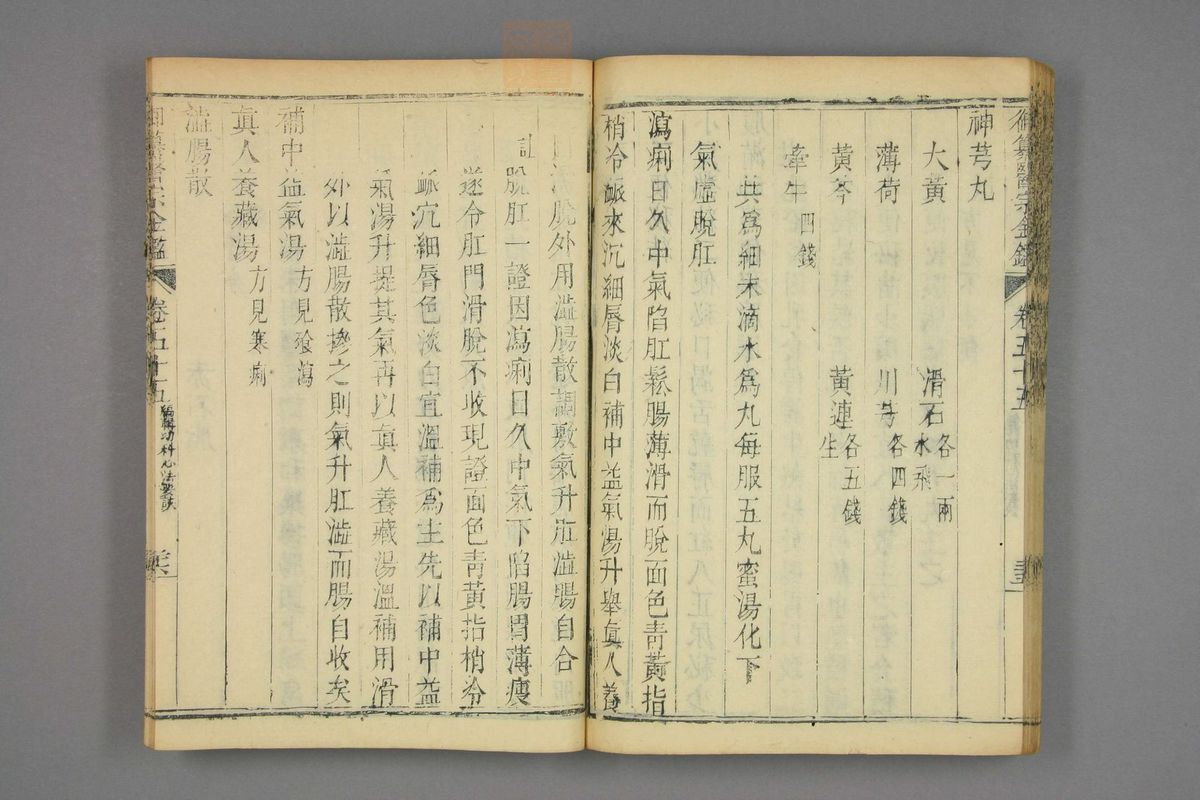 御纂醫宗金鑑 卷五十五
神芎丸
大黃 滑石水飛 各一兩
薄荷 川芎 各四錢
黃芩 黃連生 各五錢
牽牛四錢
共爲細末滴水爲丸每服五丸蜜湯化下
氣虛脫肛
瀉痢日久中氣陷肛鬆腸薄滑而脫面色青黃指
梢冷脈來沉細唇淡白補中益氣湯升舉眞人養
脫外用澁腸散調敷氣升肛澁腸自合
註脫肛一證因瀉痢日久中氣下陷腸胃薄瘦
遂令肛門滑脫不收現證面色青黃指梢冷
脈沉細唇色淡白宜溫補爲主先以補中益
氣湯升提其氣再以眞人養藏湯溫補用滑
外以澁腸散摻之則氣升肛澁而腸自收矣
補中益氣湯方見飱瀉
眞人養藏湯方見寒痢
澁腸散
御纂醫宗金鑑 卷五十五 編輯幼科心法要訣